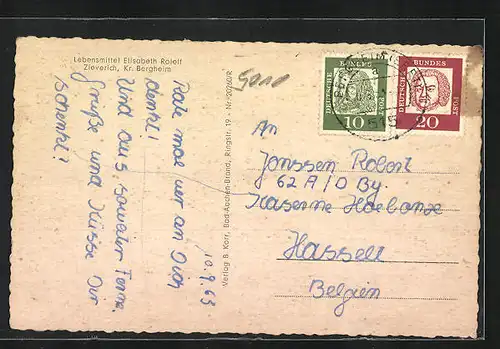 Lebensmittel Elisabeth Roleff
Zieverich, Kr. Bergheim
10.9.63
Rate mal wer an Dich
denkt!
Und aus soweiter Ferne
Grüße und Küsse Dir
schenkt!
Verlag B. Korr, Bad-Aachen-Brand, Ringstr. 19 - Nr.
DEUTSCHE BUNDESPOST
10
DEUTSCHE BUNDESPOST
20
An
Janssen Robert
62 A/D By
Kaserne
Hasselt
Belgien